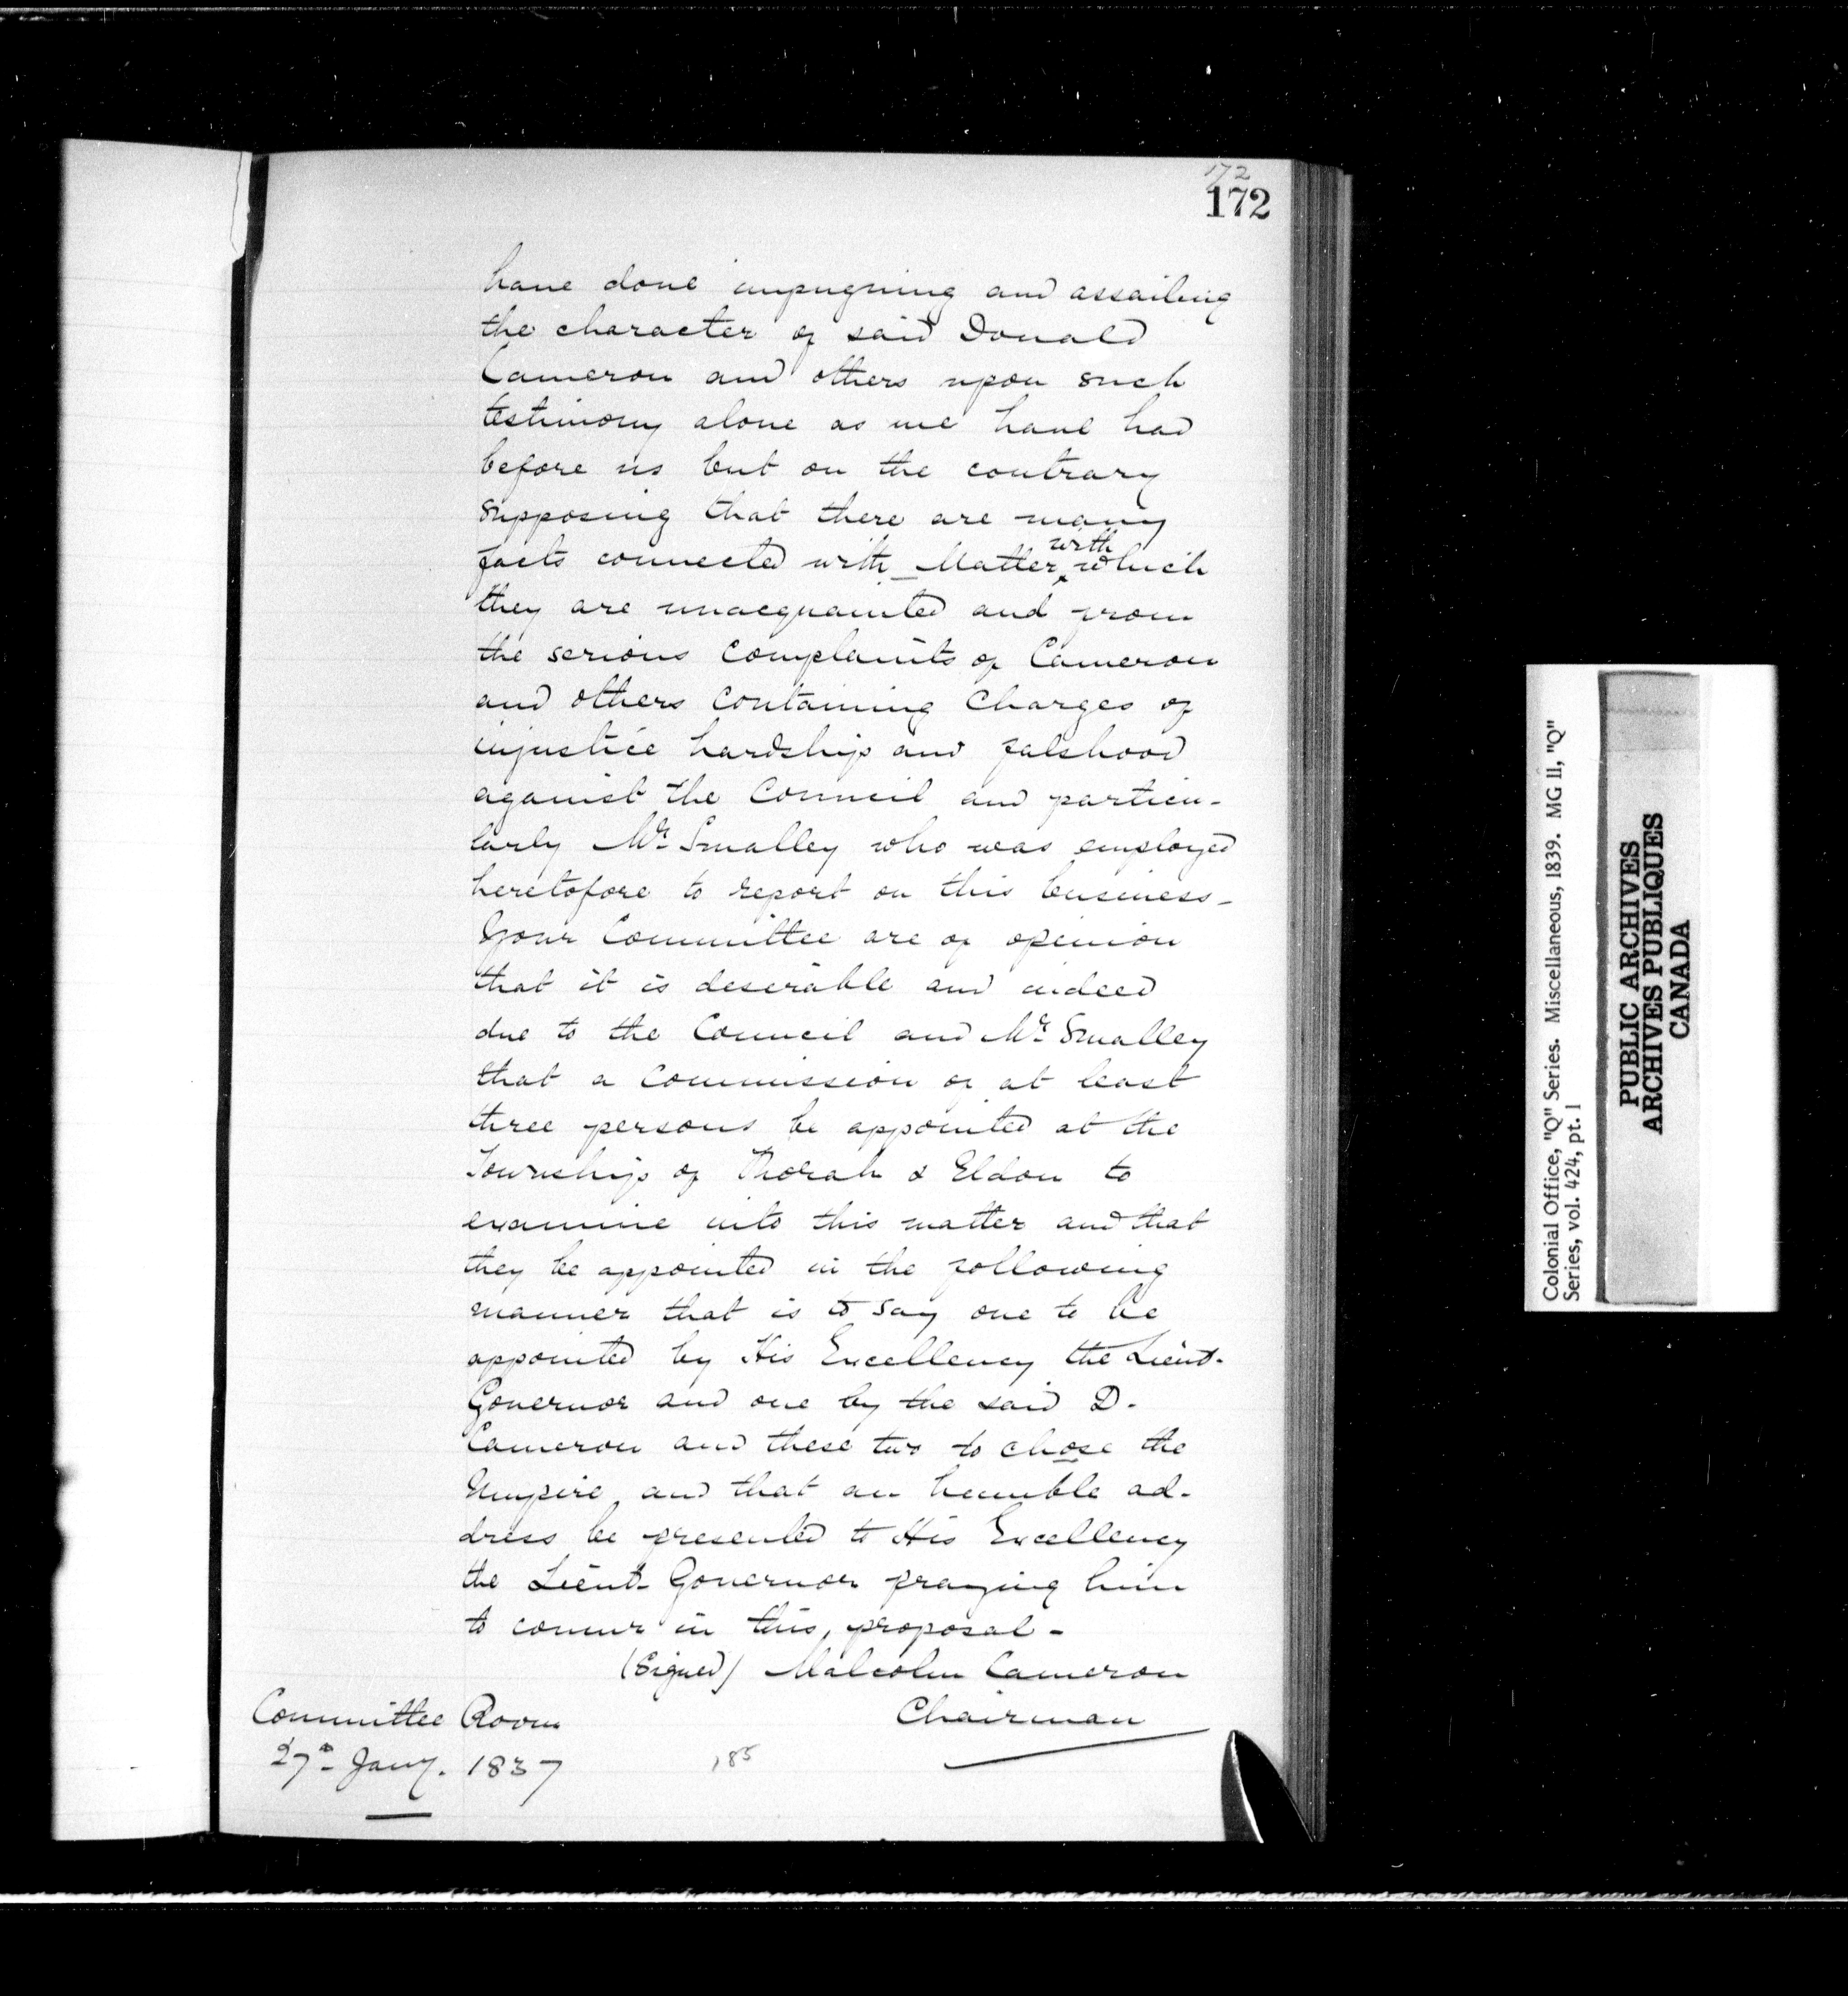 172
172
have done impugning and assailing
the character of said Donald
Cameron and others upon such
testimony alone as we have had
before us but on the contrary
supposing that there are many
with
facts connected with Matter which
they are unacquainted and from
the serious Complaints of Cameron
and others Containing Charges of
injustice hardship and falshood
against the Council and particu-
larly Mr. Smalley who was employed
heretofore to report on this business -
Your Committee are of opinion
that it is deserable and indeed
due to the Council and Mr. Smalley
that a Commission of at least
three persons be appointed at the
Township of Thorah & Eldon to
examine into this matter and that
they be appointed in the following
manner that is to say one to be
appointed by His Excellency the Lieut.
Governor and one by the said D.
Cameron and these two to chose the
Umpire and that an humble ad-
dress be presented to His Excellency
the Lieut. Governor praying him
to concur in this, proposal -
(Signed) Malcolm Cameron
Chairman
Committee Room
27th Jany. 1837
185
Colonial Office, "Q" Series. Miscellaneous, 1839. MG 11, "Q"
Series, vol. 424, pt. 1
PUBLIC ARCHIVES
ARCHIVES PUBLIQUES
CANADA